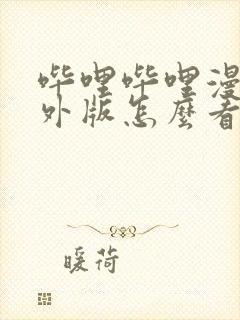 哔哩哔哩漫
外版怎麼看
暖荷